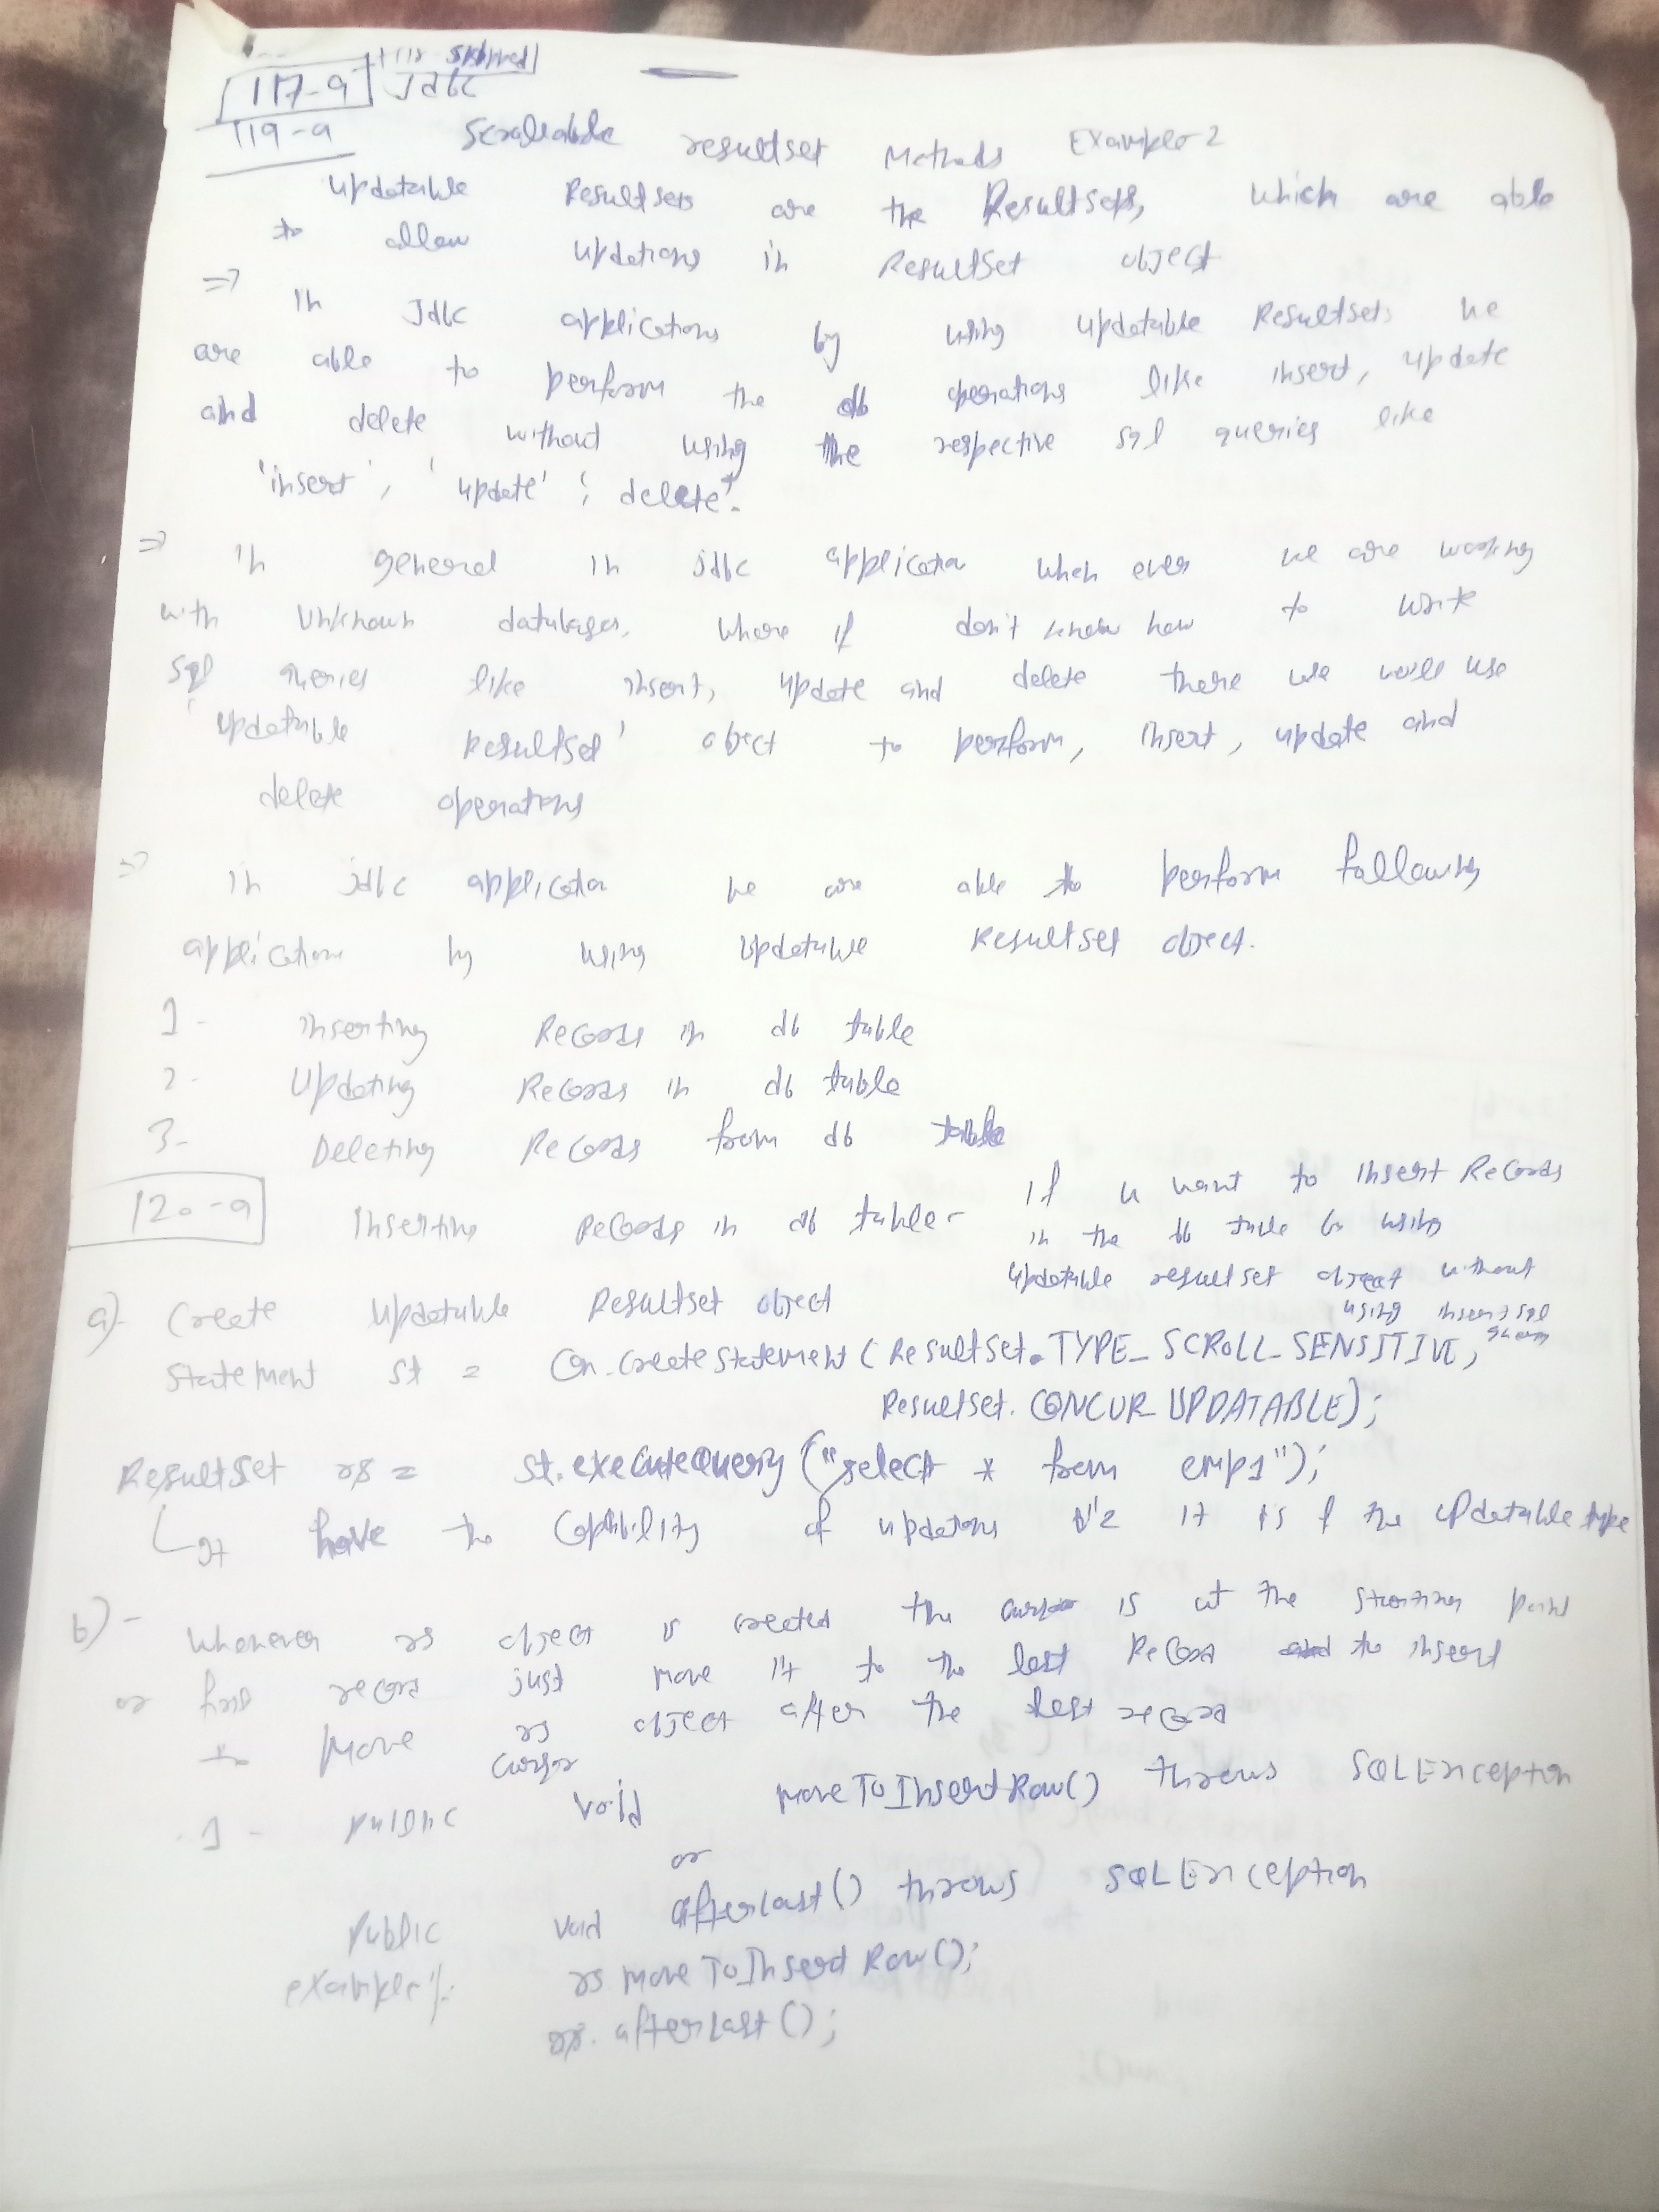 118 skipped
117-a Jdbc
119-a Scrollable resultset Methods Example-2
updatable Resultsets are the Resultsets, which are able
to allow updations in ResultSet object
=> in Jdbc applications by using updatable Resultsets we
are able to perform the db operations like insert, update
and delete without using the respective sql queries like
'insert', 'update', 'delete'.
=> in general in jdbc application when ever we are working
with unknown databases, where if don't know how to write
sql queries like insert, update and delete there we will use
'updatable Resultset' object to perform, insert, update and
delete operations
=> in jdbc application we are able to perform following
applications by using updatable Resultset object.
1- inserting Records in db table
2- Updating Records in db table
3- Deleting Records from db table
120-a Inserting Records in db table- if u want to insert Records
in the db table by using
updatable resultset object without
using insert sql
query
a)- Create Updatable Resultset object
Statement st = Con.createStatement(ResultSet.TYPE_SCROLL_SENSITIVE,
Resultset.CONCUR_UPDATABLE);
ResultSet rs = st.executeQuery("select * from emp1");
It have the Capibility of updations it is of the updatable type
b)- Whenever rs object is created the cursor is at the starting point
or first record just move it to the last Record to insert
to move rs object after the last record
cursor
1- public void moveToInsertRow() throws SQLException
or
public void afterLast() throws SQLException
example:- rs moveToInsertRow();
rs. afterLast();